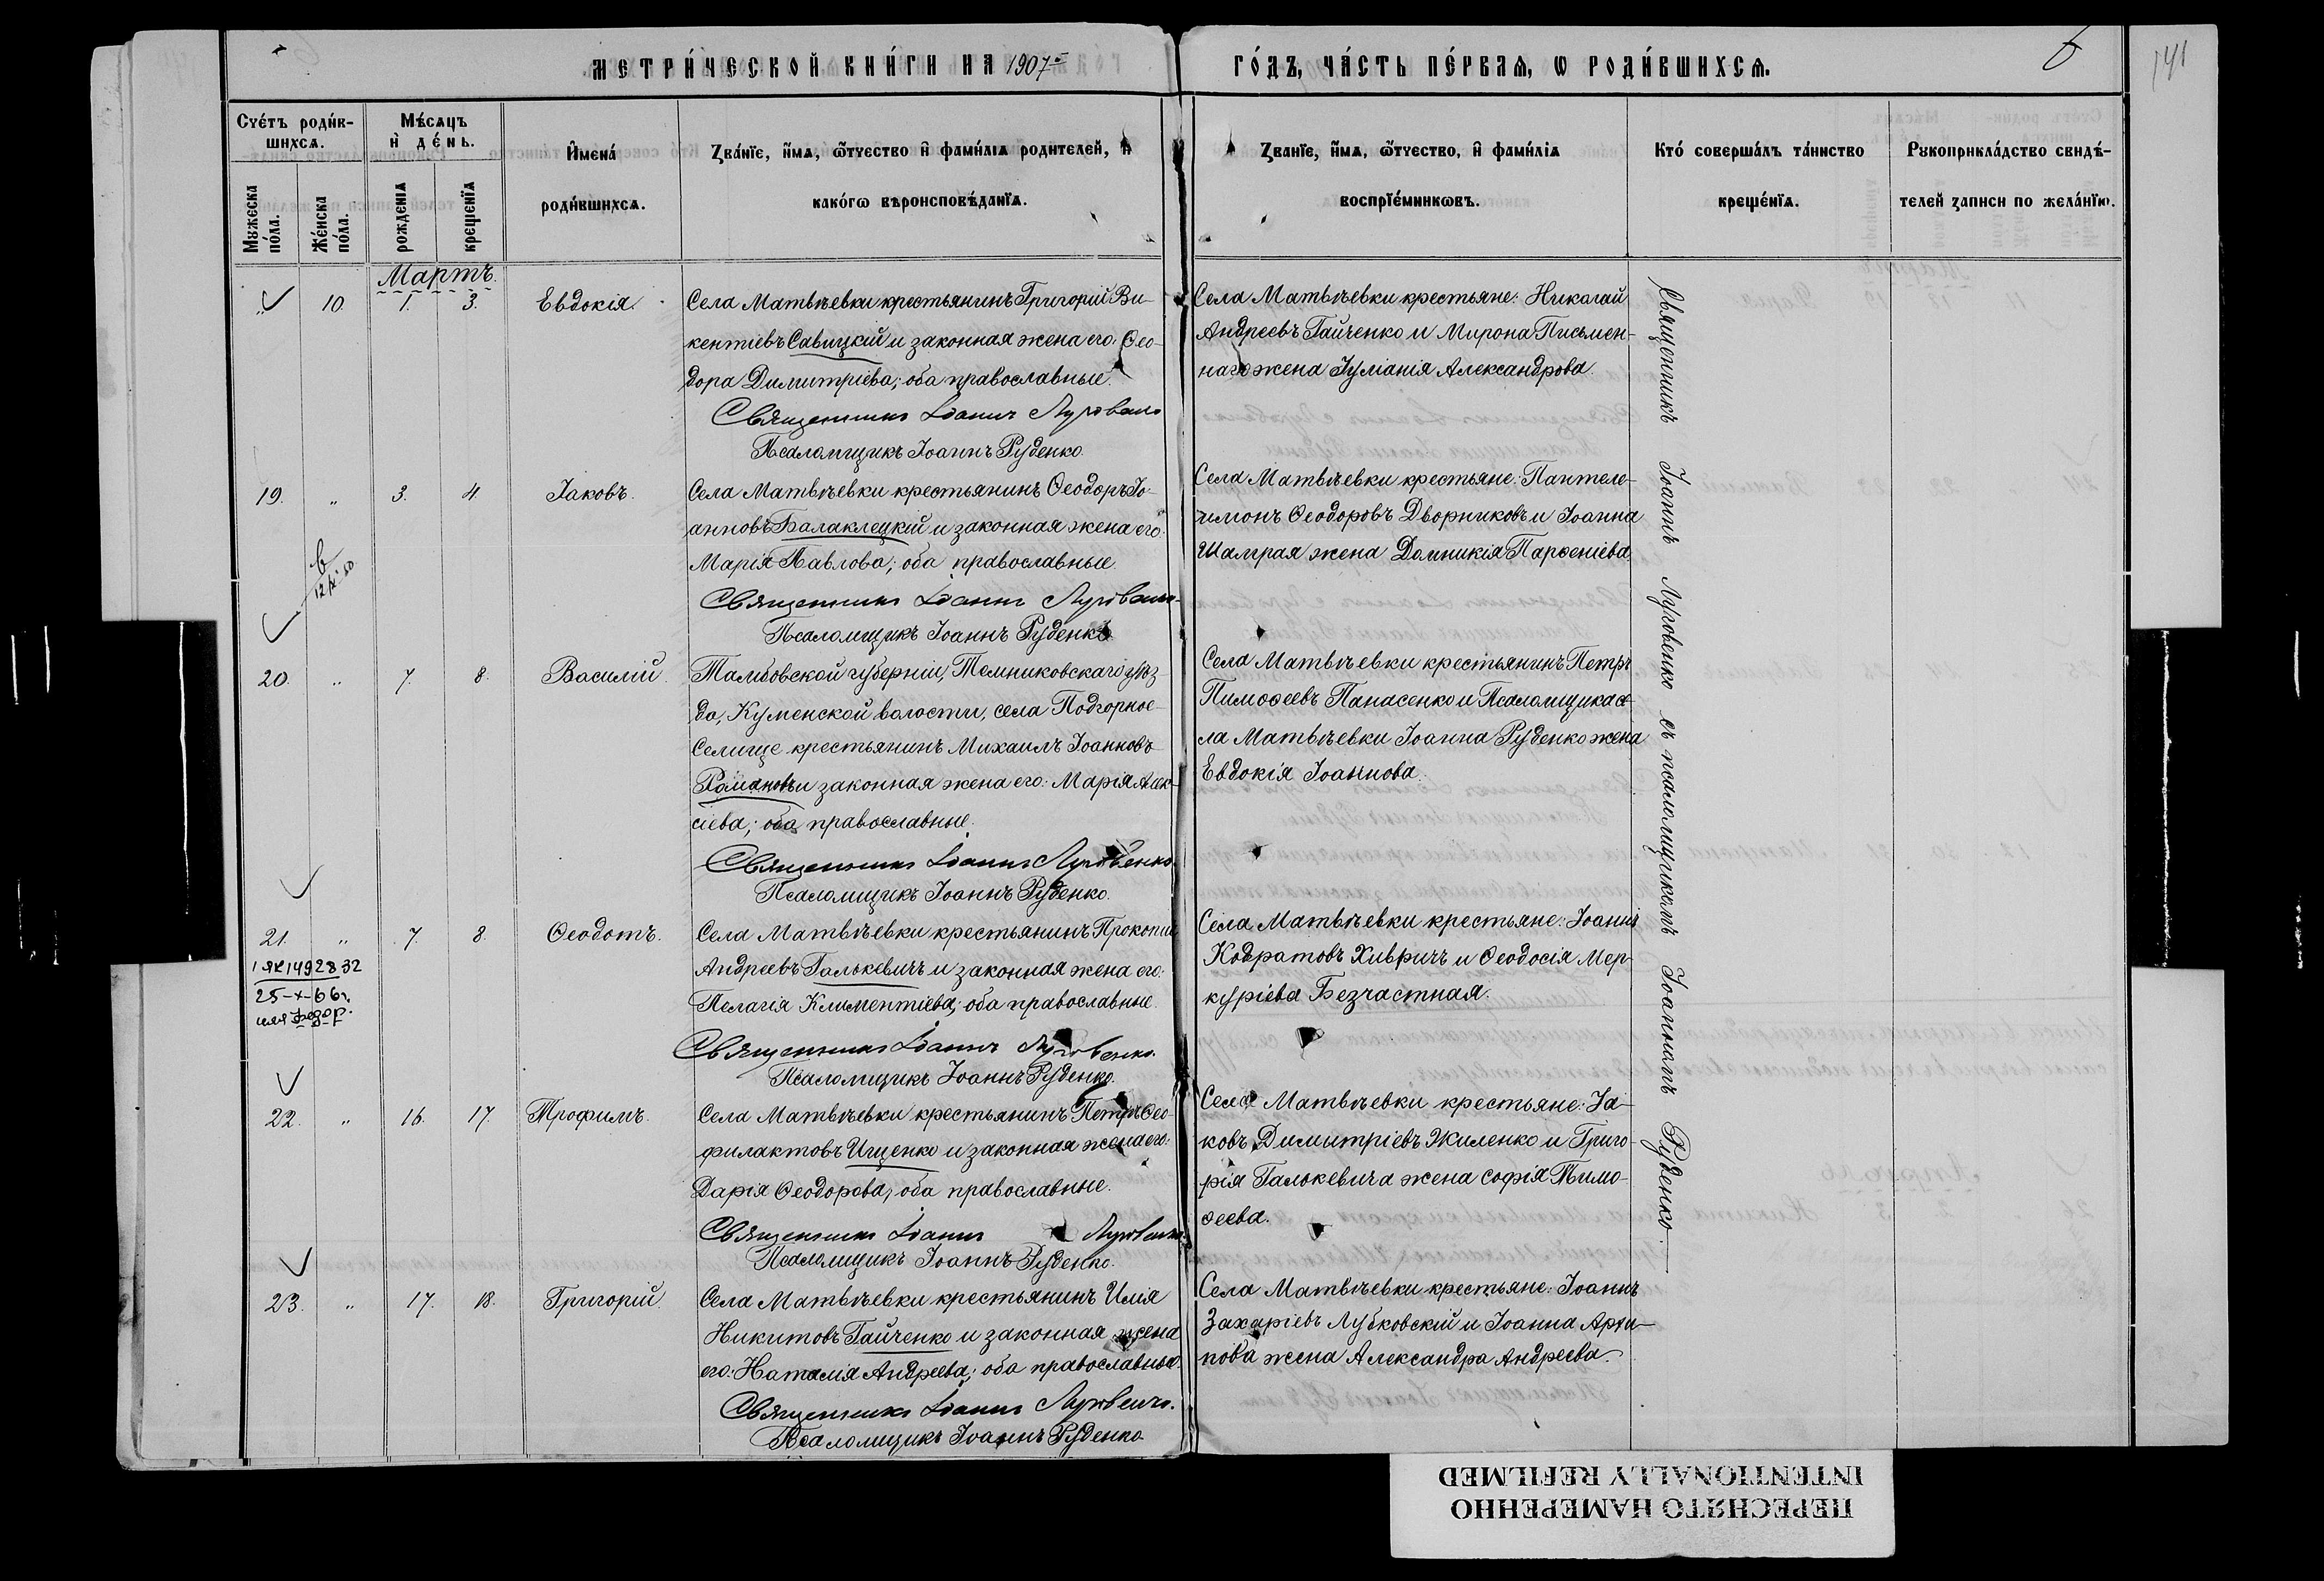 МЕТРИ́ЧЕСКОЙ КНИ́ГИ НА 1907-й
ГО́ДЪ, ЧА́СТЬ ПЕ́РВАѦ, Ѡ РОДИ́ВШИХСѦ.
6
141
Сче́тъ роди́в-
шихсѧ.
Мꙋжеска
по́ла.
Же́нска
по́ла.
Мѣ́сѧцъ
и҆ де́нь.
рожденїѧ
крещенїѧ
И҆мена́
роди́вшихсѧ.
Зва́нїе, и҆́мѧ, ѻ҆́тчество и҆ фами́лїѧ родителей, и҆
како́гѡ вѣроисповѣ́данїѧ.
Званїе, и҆́мѧ, ѻ҆́тчество, и҆ фами́лїѧ
воспрїе́мникѡвъ.
Кто́ соверша́лъ та́инство
креще́нїѧ.
Рꙋкоприкла́дство свидѣ́-
телей записи по жела́нїю.
Мартъ.
„ 10. 1. 3. Евдокія.
Села Матвѣевки крестьянинъ Григорій Ви-
кентіевъ Савицкій и законная жена его: Ѳео-
дора Димитріева; оба православные.
Священникъ Іоаннъ Луговенко
Псаломщикъ Іоаннъ Руденко.
Села Матвѣевки крестьяне: Николай
Андреевъ Гайченко и Мирона Письмен-
наго жена Іуліанія Александрова.
19. „ 3. 4 Іаковъ.
Села Матвѣевки крестьянинъ Ѳеодоръ Іо-
анновъ Балаклецкій и законная жена его:
Марія Павлова; оба православные.
Священникъ Іоаннъ Луговенко
Псаломщикъ Іоаннъ Руденко.
Села Матвѣевки крестьяне: Пантеле-
имонъ Ѳеодоровъ Дворниковъ и Іоанна
Шамрая жена Домникія Парѳеніева.
20. „ 7. 8. Василій.
Тамбовской губерніи, Темниковскаго уѣз-
да, Куменской волости, села Подгорное-
Селище крестьянинъ Михаилъ Іоанновъ
Романовъ и законная жена его: Марія Алек-
сіева; оба православные.
Священникъ Іоаннъ Луговенко.
Псаломщикъ Іоаннъ Руденко.
Села Матвѣевки крестьянинъ Петръ
Тимоѳеевъ Панасенко и Псаломщика се-
ла Матвѣевки Іоанна Руденко жена
Евдокія Іоаннова.
21. „ 7. 8. Ѳеодотъ.
1 ЯК 1492832
25-X-66г.
имя Федор.
Села Матвѣевки крестьянинъ Прокопій
Андреевъ Галькевичъ и законная жена его:
Пелагія Климентіева; оба православные.
Священникъ Іоаннъ Луговенко.
Псаломщикъ Іоаннъ Руденко.
Села Матвѣевки крестьяне: Іоаннъ
Кодратовъ Хивричъ и Ѳеодосія Мер-
куріева Безчастная.
22. „ 16. 17. Трофимъ.
Села Матвѣевки крестьянинъ Петръ Ѳео-
филактовъ Ищенко и законная жена его:
Дарія Ѳеодорова; оба православные.
Священникъ Іоаннъ Луговенко.
Псаломщикъ Іоаннъ Руденко.
Села Матвѣевки крестьяне: Іа-
ковъ Димитріевъ Жиленко и Григо-
рія Галькевича жена Софія Тимо-
ѳеева.
23. „ 17. 18. Григорій.
Села Матвѣевки крестьянинъ Илія
Никитовъ Гайченко и законная жена
его: Наталія Андреева; оба православные.
Священникъ Іоаннъ Луговенко.
Псаломщикъ Іоаннъ Руденко
Села Матвѣевки крестьяне: Іоаннъ
Захаріевъ Лубковскій и Іоанна Архи-
пова жена Александра Андреева.
Священникъ Іоаннъ Луговенко съ псаломщикомъ Іоанномъ Руденко.
ПЕРЕСНЯТО НАМЕРЕННО
INTENTIONALLY REFILMED